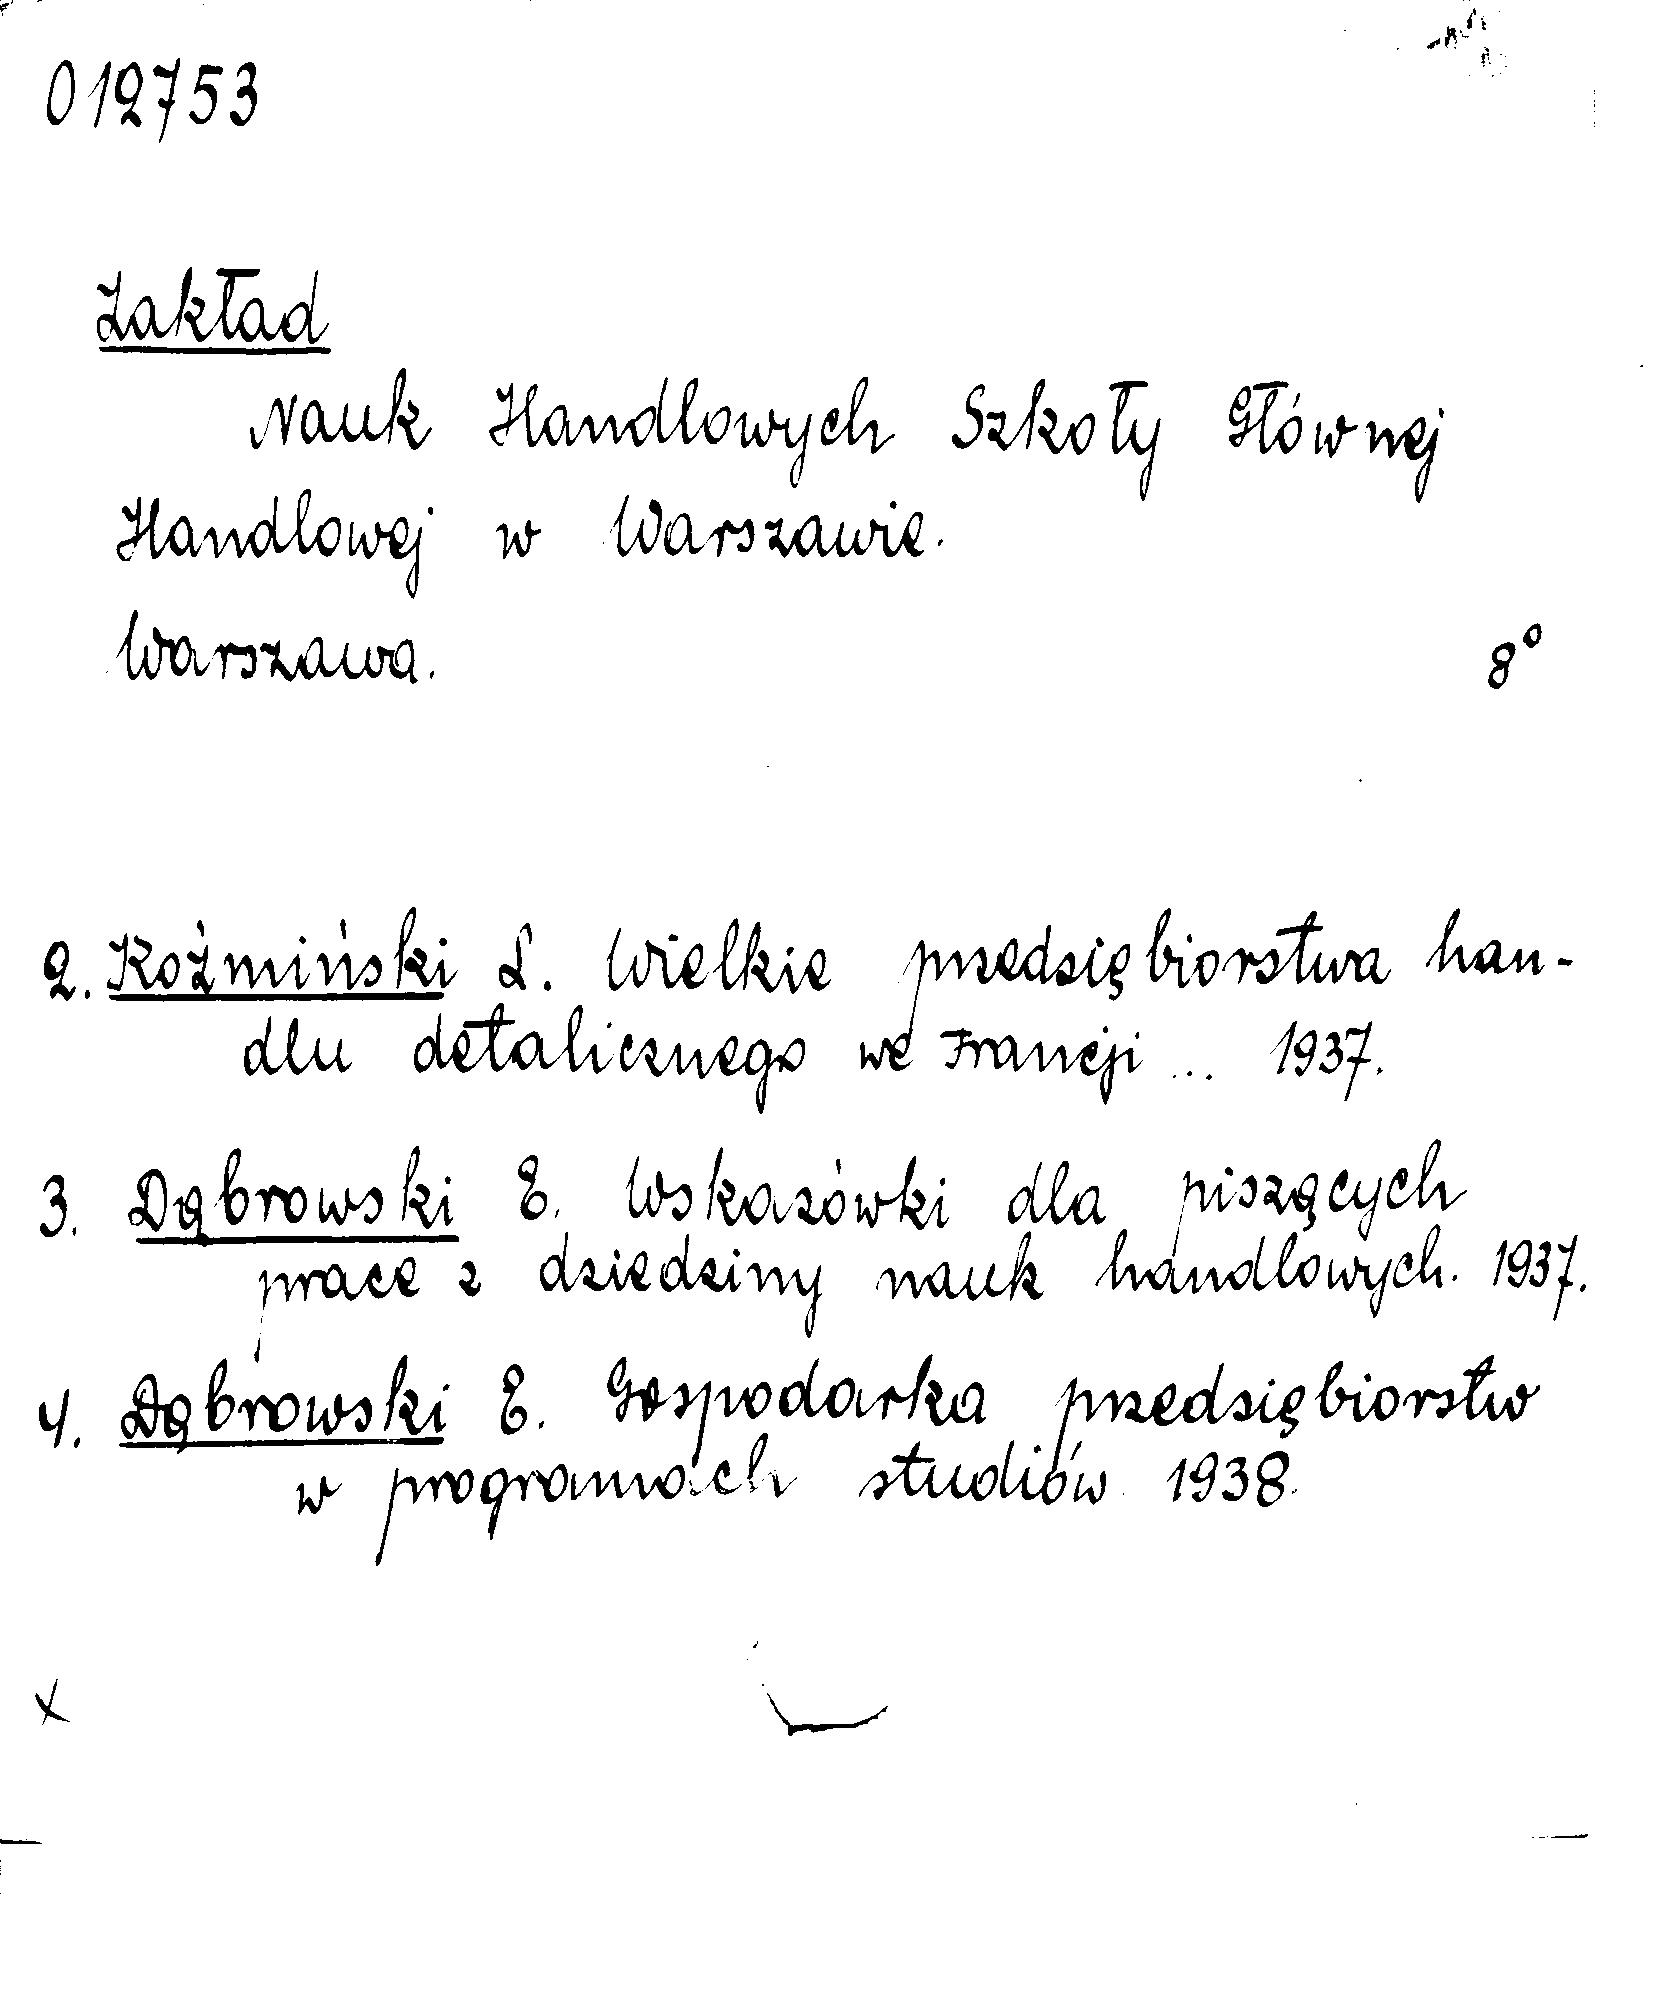 012753
Zakład
Nauk Handlowych Szkoły Głównej
Handlowej w Warszawie.
Warszawa. 8°
2. Koźmiński L. Wielkie przedsiębiorstwa han-
dlu detalicznego we Francji ... 1937.
3. Dąbrowski E. Wskazówki dla piszących
prace z dziedziny nauk handlowych. 1937.
4. Dąbrowski E. Gospodarka przedsiębiorstw
w programach studiów 1938.
x